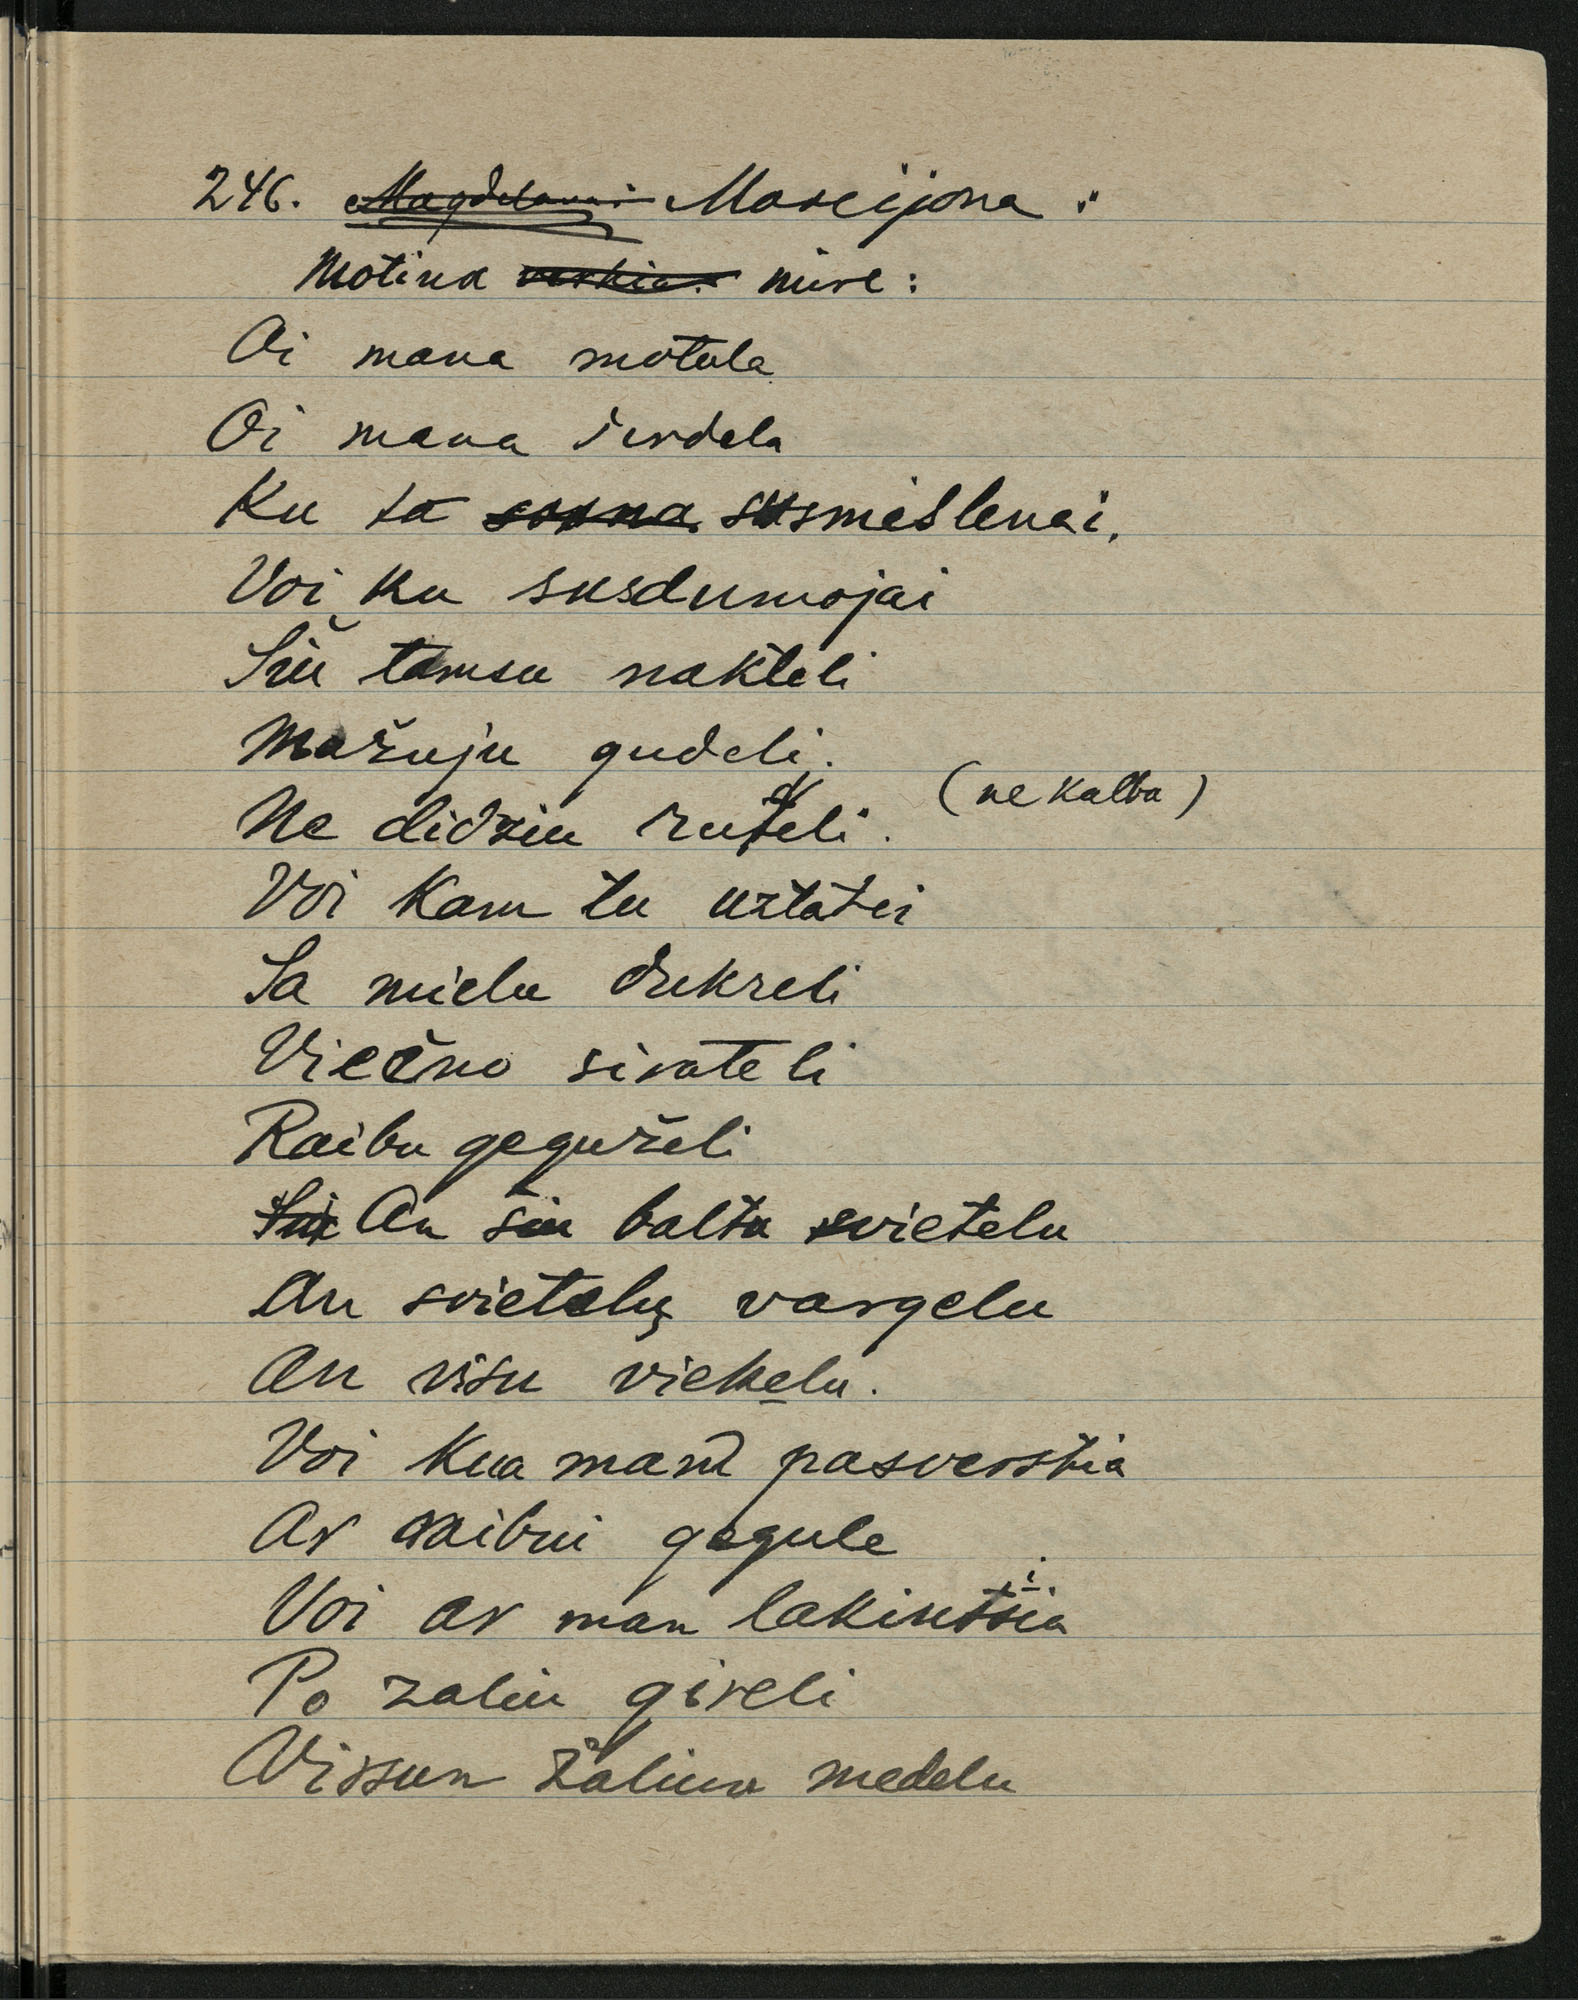 246. Magdelanai Marcijona :
Motina verkia: mire:
Oi mana motula
Oi mana sirdela
Ku ta susmislenai.
Voi ku susdumojai
Šiu tamsu nakteli
Mažuju gudeli.
Ne didziu rudteli. (ne kalba)
Voi Kam tu uztatei
Sa mielu dukreli
Viečno sirateli
Raibu geguželi
Šiu An šiu baltu svietelu
An svietelų vargelu
An visu viekelu.
Voi Kua mani pasverstia
Ar raibui gegule
Voi ar man lakintsia
Po zaliu gireli
Virsun žaliun medelu